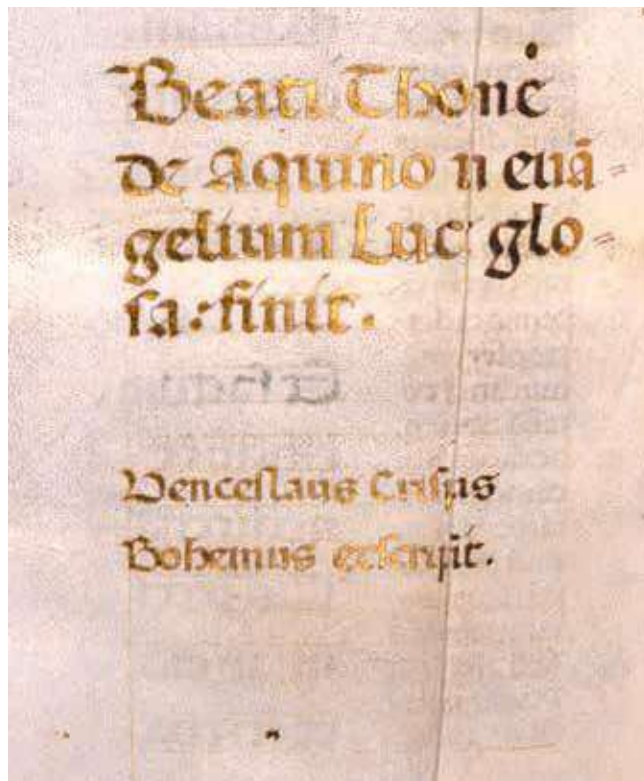 Beati Thome
de Aquino in euā=
gelium Luce glo=
sa: finit.
Venceslaus Crispus
Bohemus exscripsit.